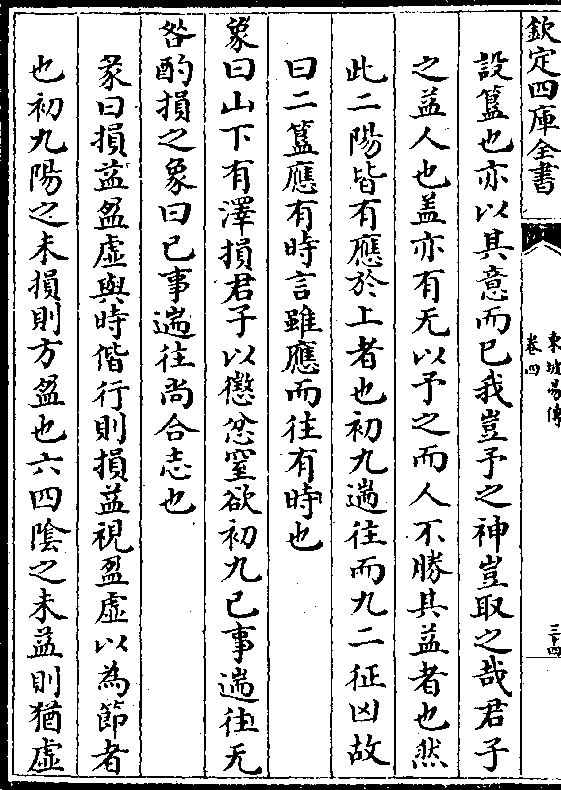 欽定四庫全書
東坡易傳
卷四
三十四
設簋也亦以其意而已我豈予之神豈取之哉君子
之益人也盖亦有无以予之而人不勝其益者也然
此二陽皆有應於上者也初九遄往而九二征凶故
曰二簋應有時言雖應而往有時也
象曰山下有澤損君子以懲忿窒欲初九已事遄往无
咎酌損之象曰已事遄往尚合志也
彖曰損益盈虛與時偕行則損益視盈虛以為節者
也初九陽之未損則方盈也六四陰之未益則猶虛